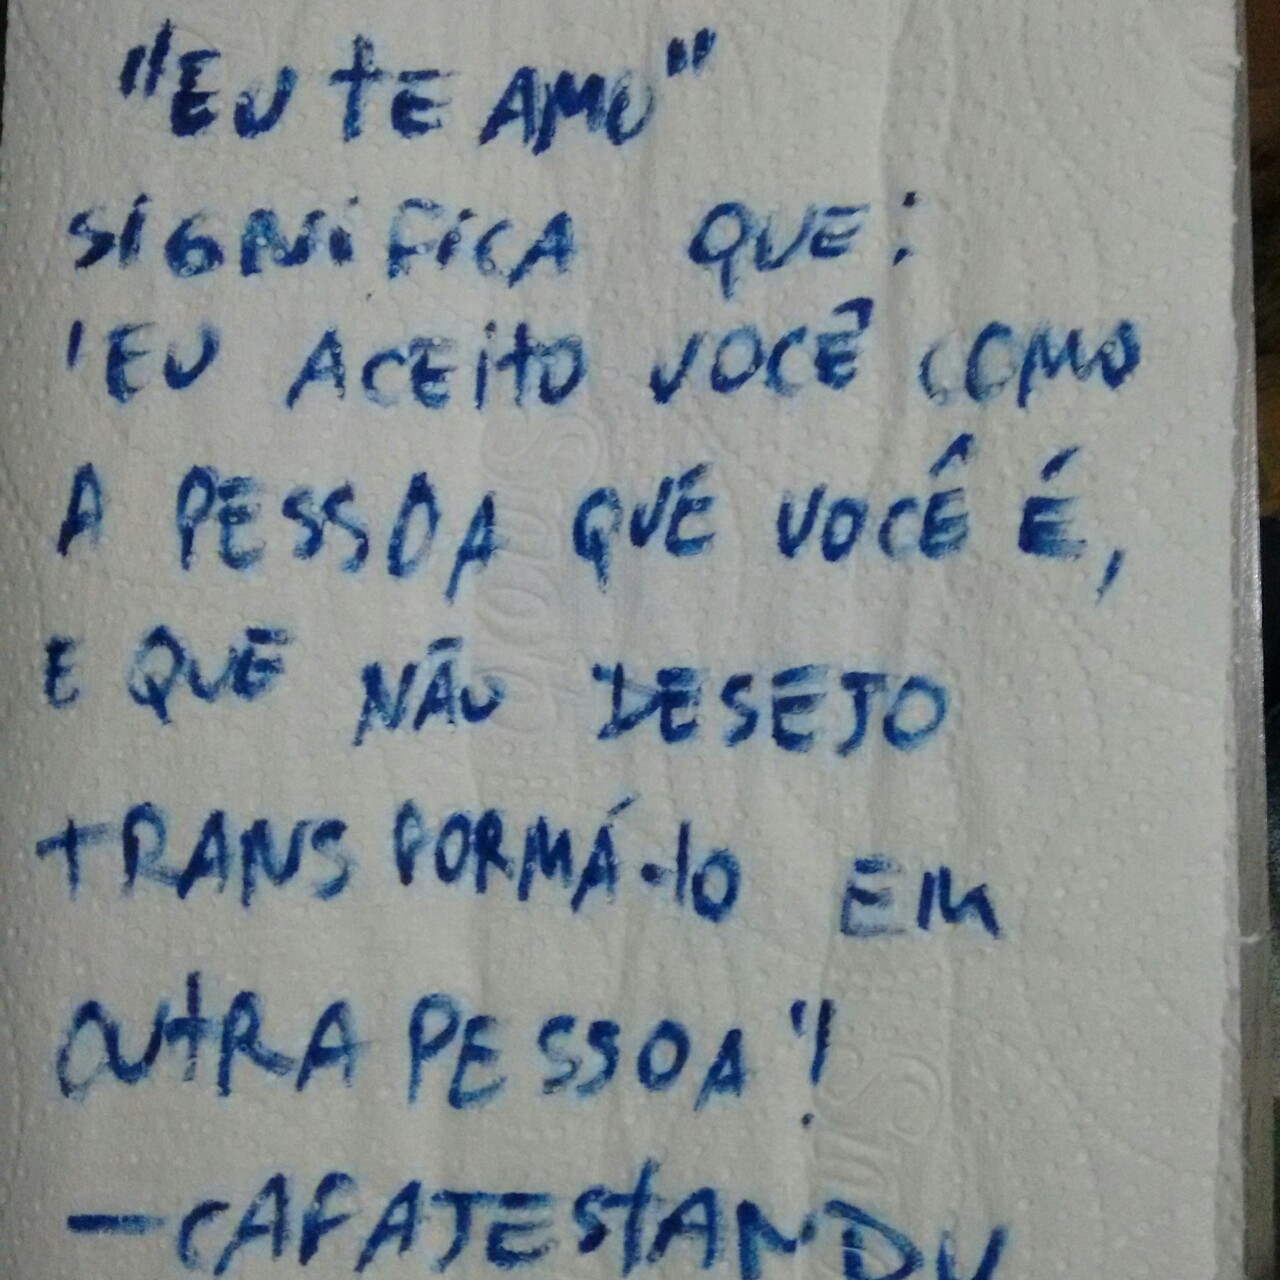 "EU TE AMO"
SIGNIFICA QUE:
'EU ACEITO VOCÊ COMO
A PESSOA QUE VOCÊ É,
E QUE NÃO DESEJO
TRANSFORMÁ-lO EM
OUTRA PESSOA'!
—CAFAJESTANDO